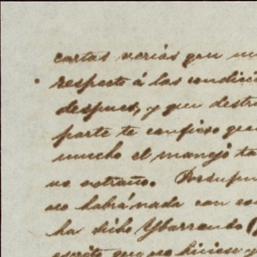 cartas verias que
respecto á las condici
despues, y que destr
parte te confieso que
mucho el manejo ta
no extraño. Por supu
no habrá nada con
ha dicho Ybarrondo
escrito que no